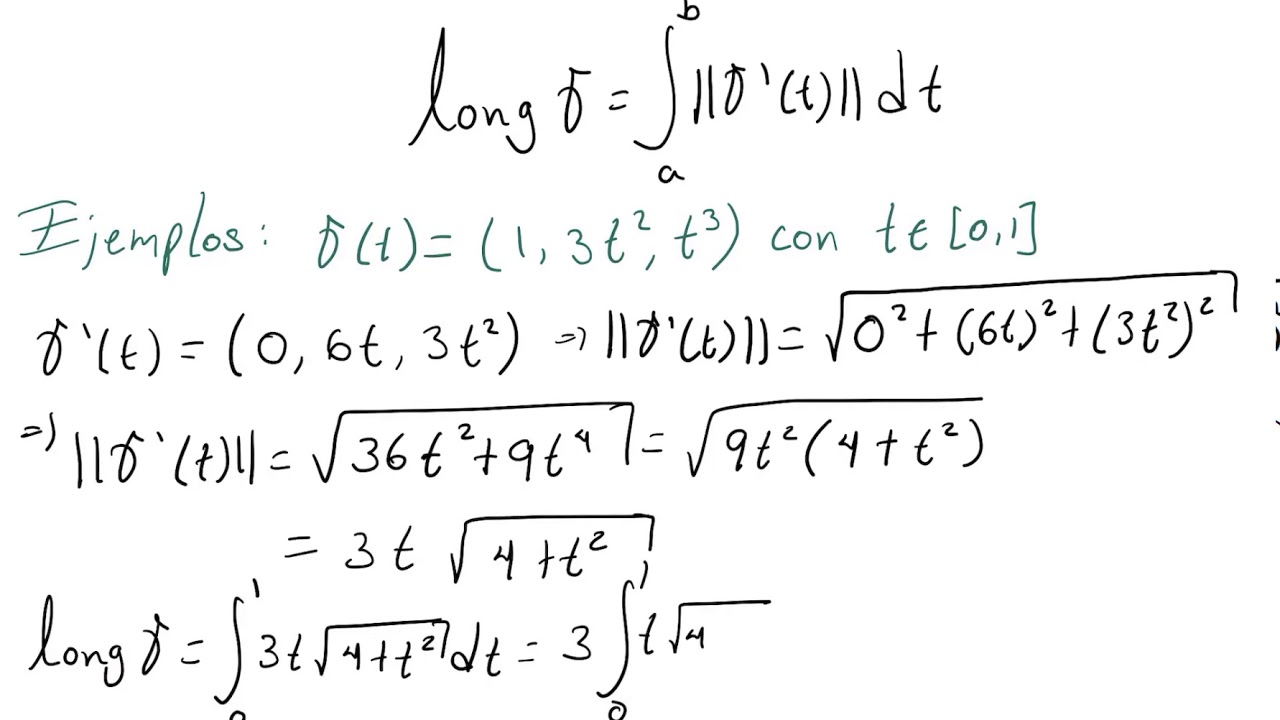 long γ = ∫_a^b ||γ'(t)|| dt
Ejemplos: γ(t) = (1, 3t², t³) con t ∈ [0,1]
γ'(t) = (0, 6t, 3t²) ⇒ ||γ'(t)|| = √(0² + (6t)² + (3t²)²)
⇒ ||γ'(t)|| = √(36t² + 9t⁴) = √(9t²(4 + t²))
= 3t √(4 + t²)
long γ = ∫_0^1 3t √(4 + t²) dt = 3 ∫_0^1 t √4